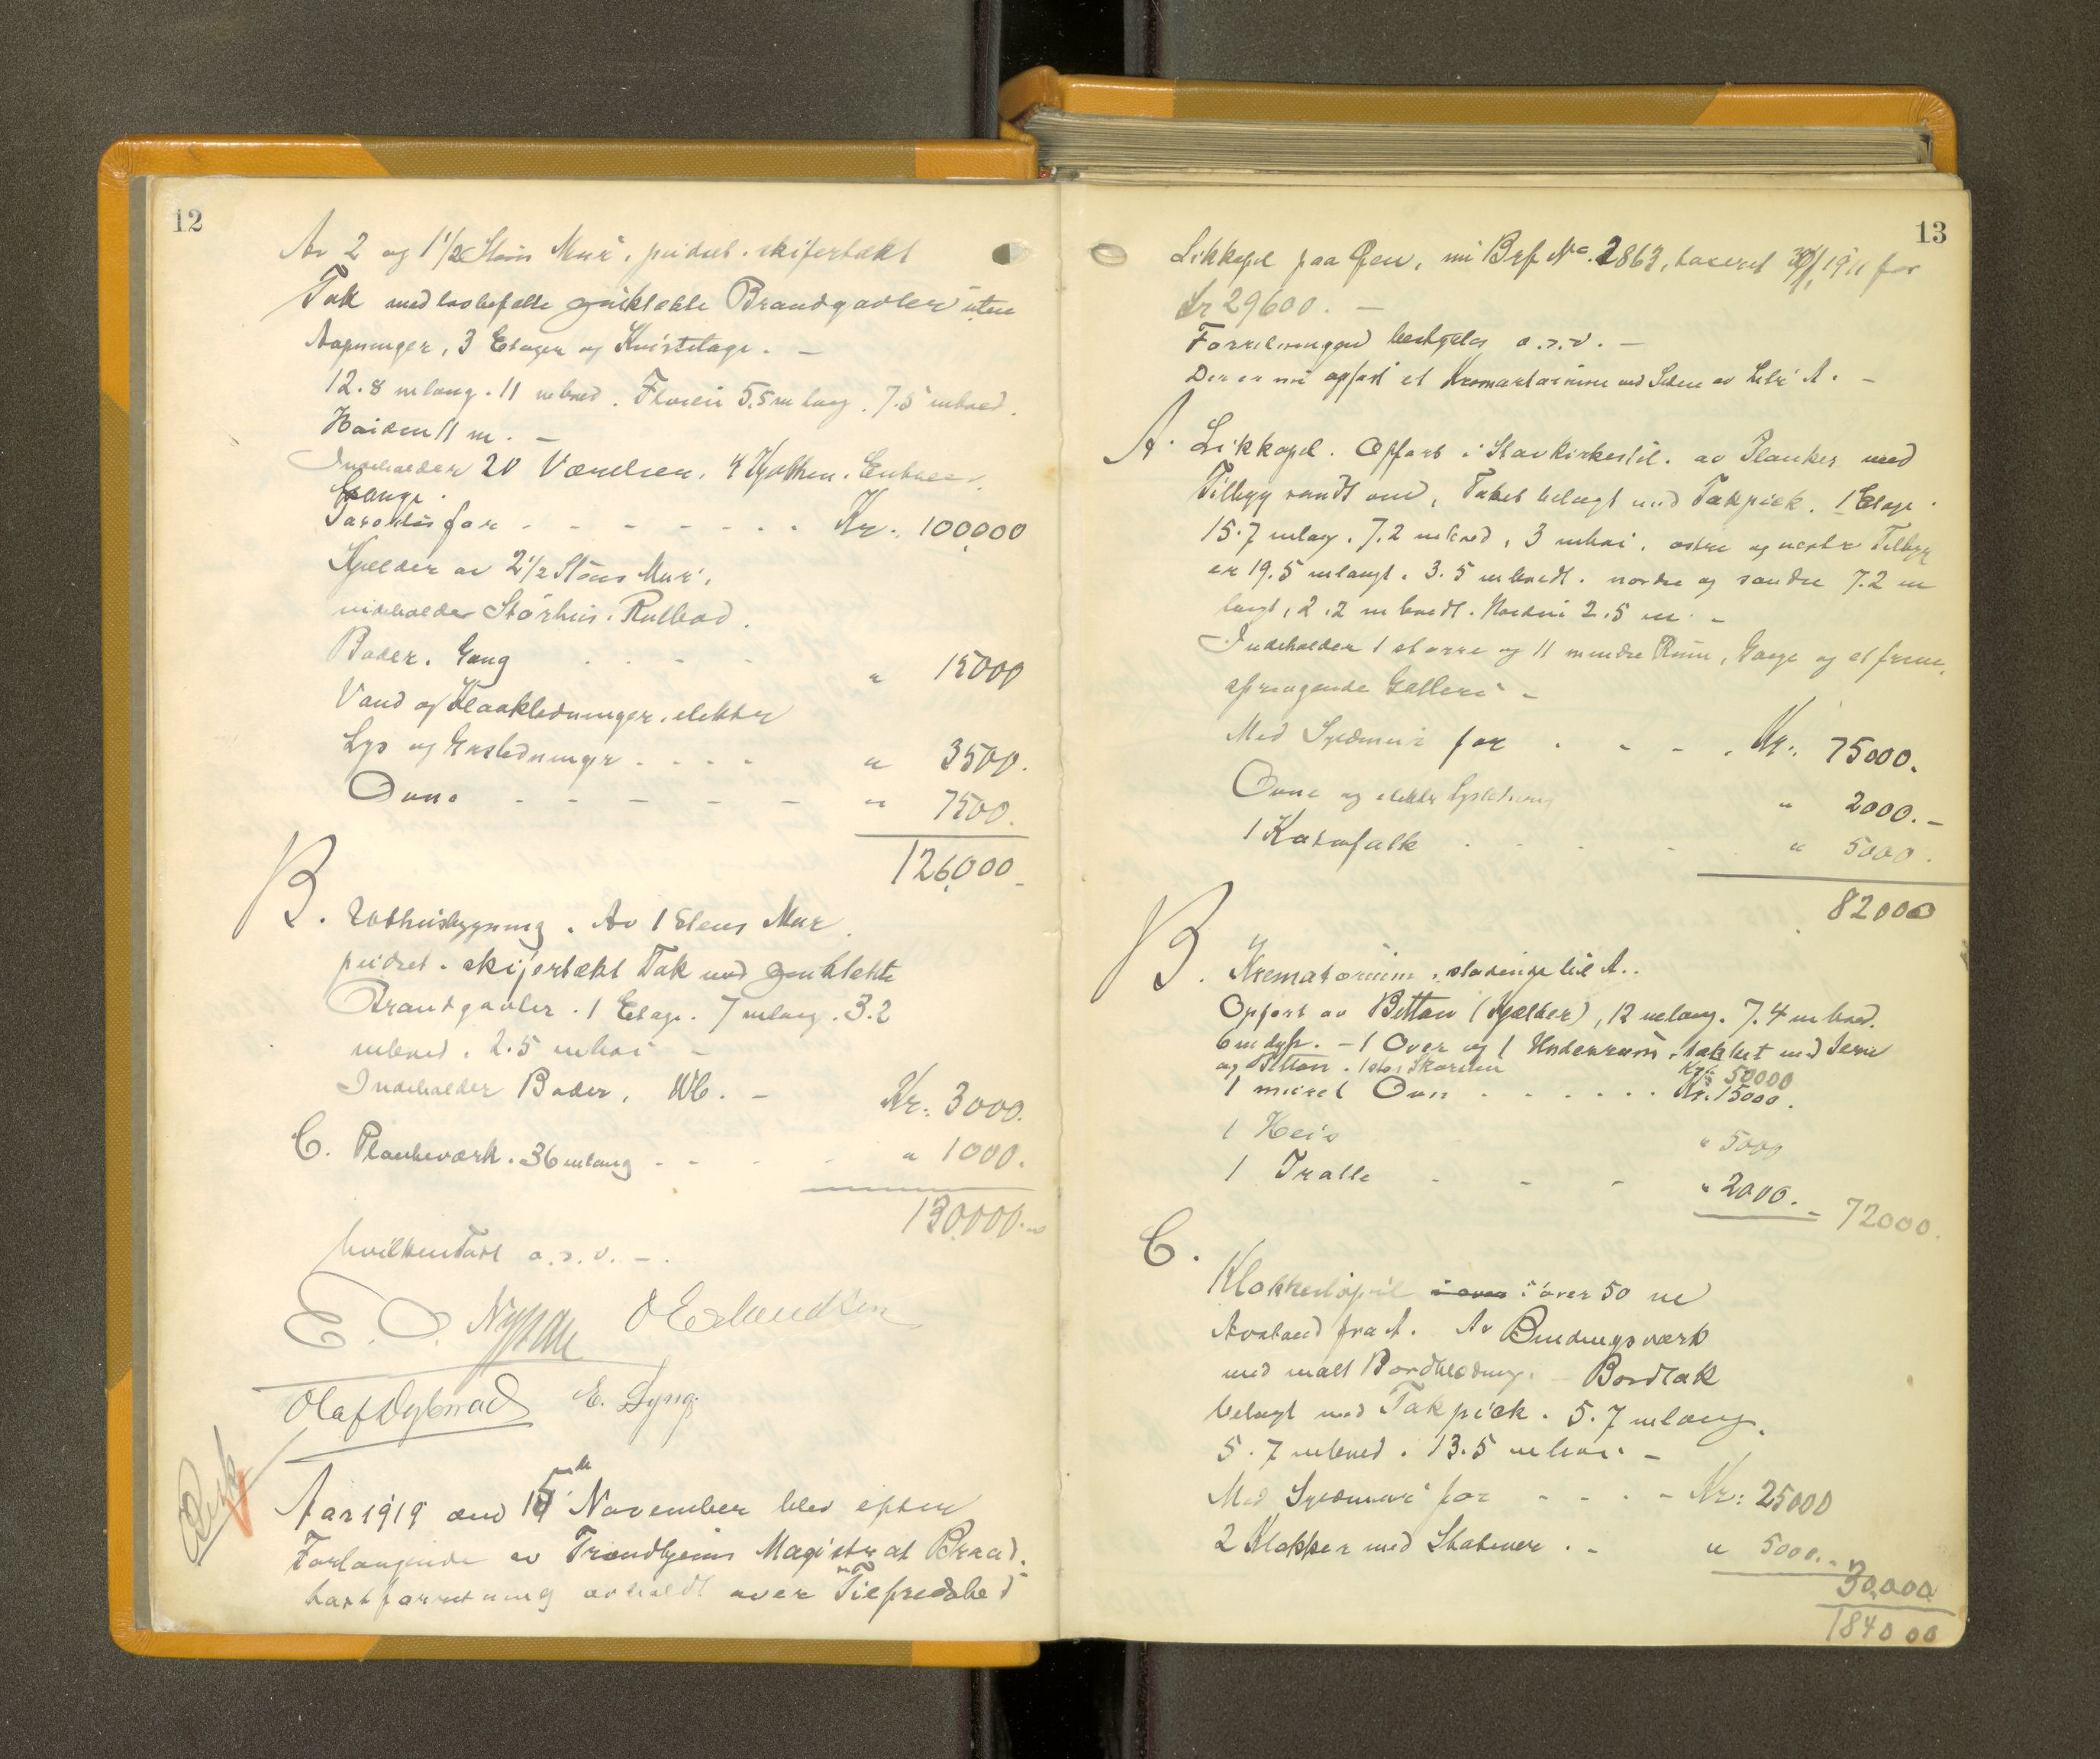 12
Av 2 og 1 1/2 Stens Mur, pudset. skifertækt
Tak med lovbefalte Brandgavler uten
Aapninger, 3 Etager og Kvistetage. -
12.8 m lang. 11 m bred. Fløien 5.5 m lang. 7.5 m bred.
Høiden 11 m. -
Indeholder 20 Værelser. 4 Kjøkken. Entreer.
Gange.
Taxertes for - - - - - - - Kr: 100,000
Kjælder av 2 1/2 Stens Mur,
indeholder Storhus. Rulbod.
Boder. Gang . . - . - " 15000
Vand og Kloakledninger. elektr
Lys og Gasledninger - - - - " 3500.
Ovne - - - - - - " 7500.
126,000 -
B. Uthusbygning. Av 1 Stens Mur
pudset. skifertækt Tak med
Brandgavler. 1 Etage. 7 m lang. 3.2
m bred. 2.5 m høi -
Indeholder Boder, WC. - Kr: 3000.
C. Plankeværk. 36 m lang - - - - " 1000.
130,000.-
hvilken Taxt o.s.v. -.
E. O. Nystau O Erlandsen
Olaf Dybvad E. Lyng.
Aar 1919 den 15de November blev efter
Forlangende av Trondhjems Magistrat Brand-
taxtforretning avholdt over "Tilfredshed"
13
Likkapel paa Øen, ny Brf No. 2863, taxeret 30/1 1911 for
Kr 29600. -
Forretningen bestyres o.s.v. -
Der er nu opført et Krematorium ved Siden av Litr. A. -
A. Likkapel. Opført i Stavkirkestil. av Planker med
Tilbygg rundt om, Taket belagt med Takpiek. 1 Etage.
15.7 m lang. 7.2 m bred, 3 m høi. østre og vestre Tilbygg
er 19.5 m langt. 3.5 m bredt. nordre og søndre 7.2 m
langt, 2.2 m bredt. Høiden 2.5 m. -
Indeholder 1 større og 11 mindre Rum, Gange og et frem-
springende Galleri -
Med Syldmur for . - - . Kr: 75000.
Ovne og elektr Lysledning " 2000.-
1 Katafalk . - . - . " 5000.
82000
B. Krematorium, stødende til A..
Opført av Betton (Kjælder), 12 m lang. 7.4 m bred.
6 m dyp. - 1 Over og 1 Underrum, tækket med Jern
og Betton. 1 stor Skorsten Kr: 50000
1 muret Ovn - . . . . . Kr. 15000.
1 Heis " 5000
1 Tralle - - - " 2000.- 72000.
C.
Klokkestøpul i over 50 m
Avstand fra A. Av Bindingsværk
med malt Bordklædning. - Bordtak
belagt med Takpiek. 5.7 m lang.
5.7 m bred. 13.5 m høi. -
Med Syldmur for - - . - Kr: 25000
2 Klokker med Stativer . - " 5000.-
30,000
184000